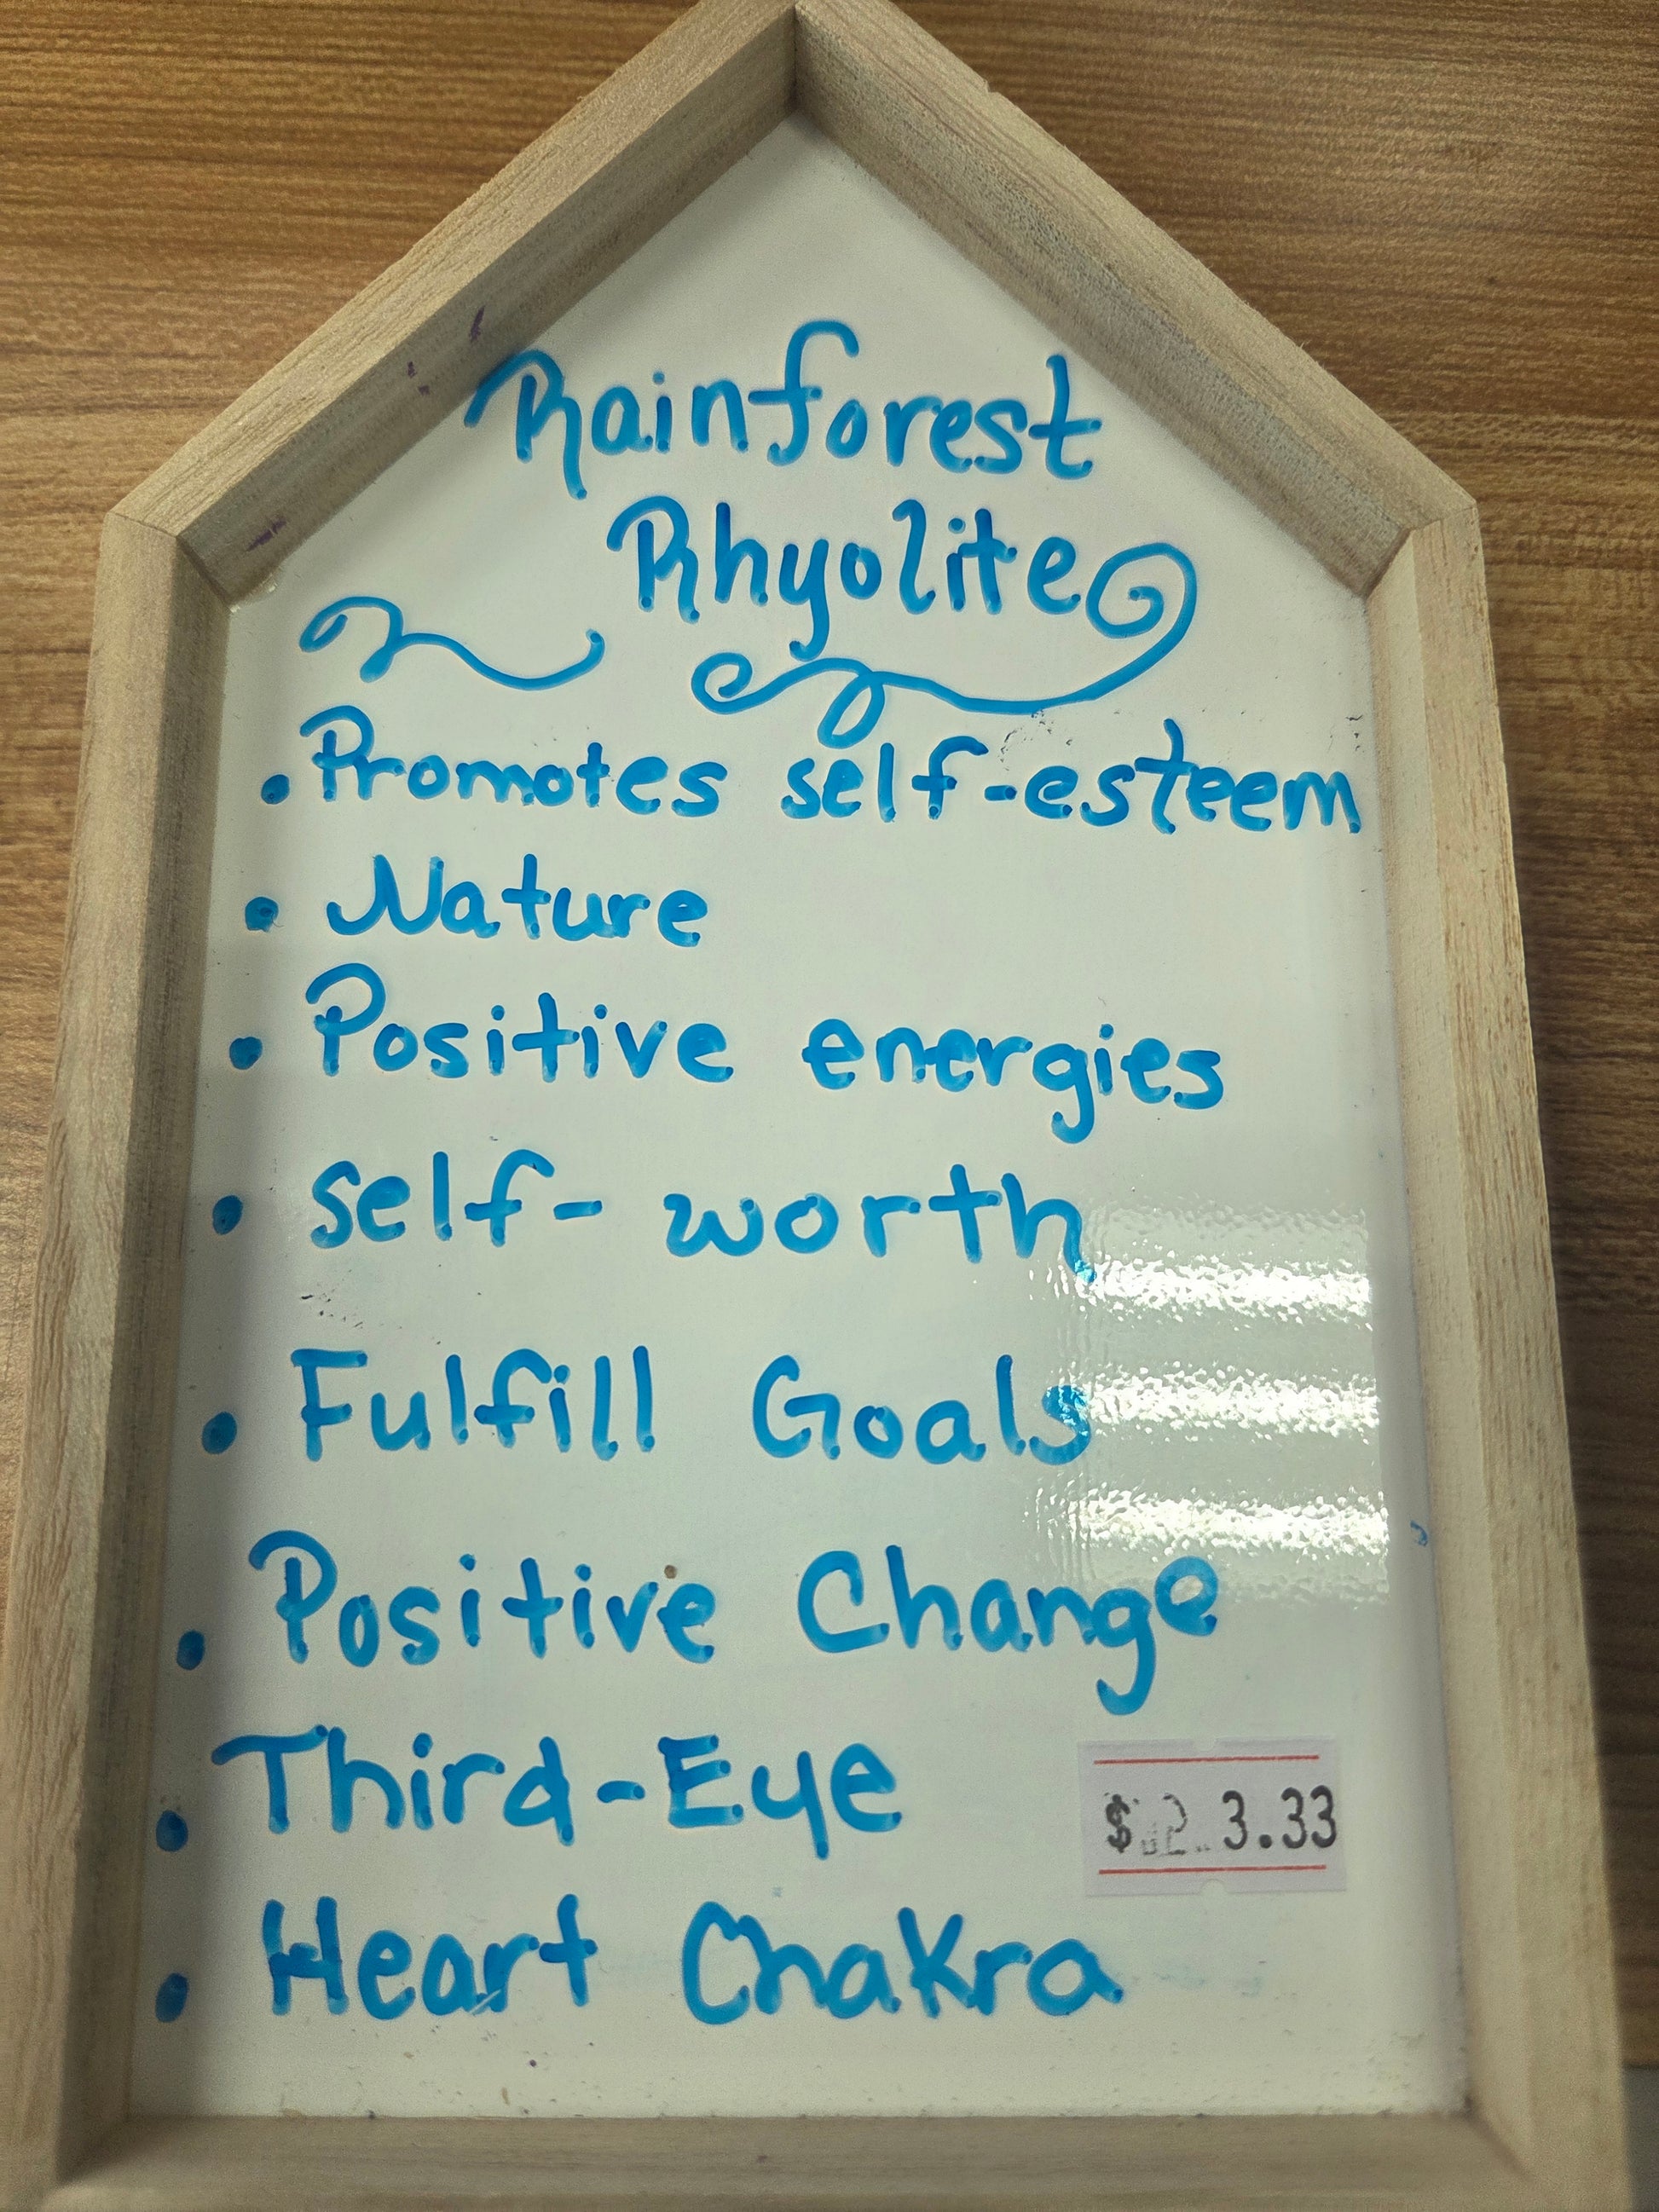 Rainforest
Rhyolite
• Promotes self-esteem
• Nature
• Positive energies
• self-worth
• Fulfill Goals
• Positive Change
• Third-Eye
$ 3.33
• Heart Chakra